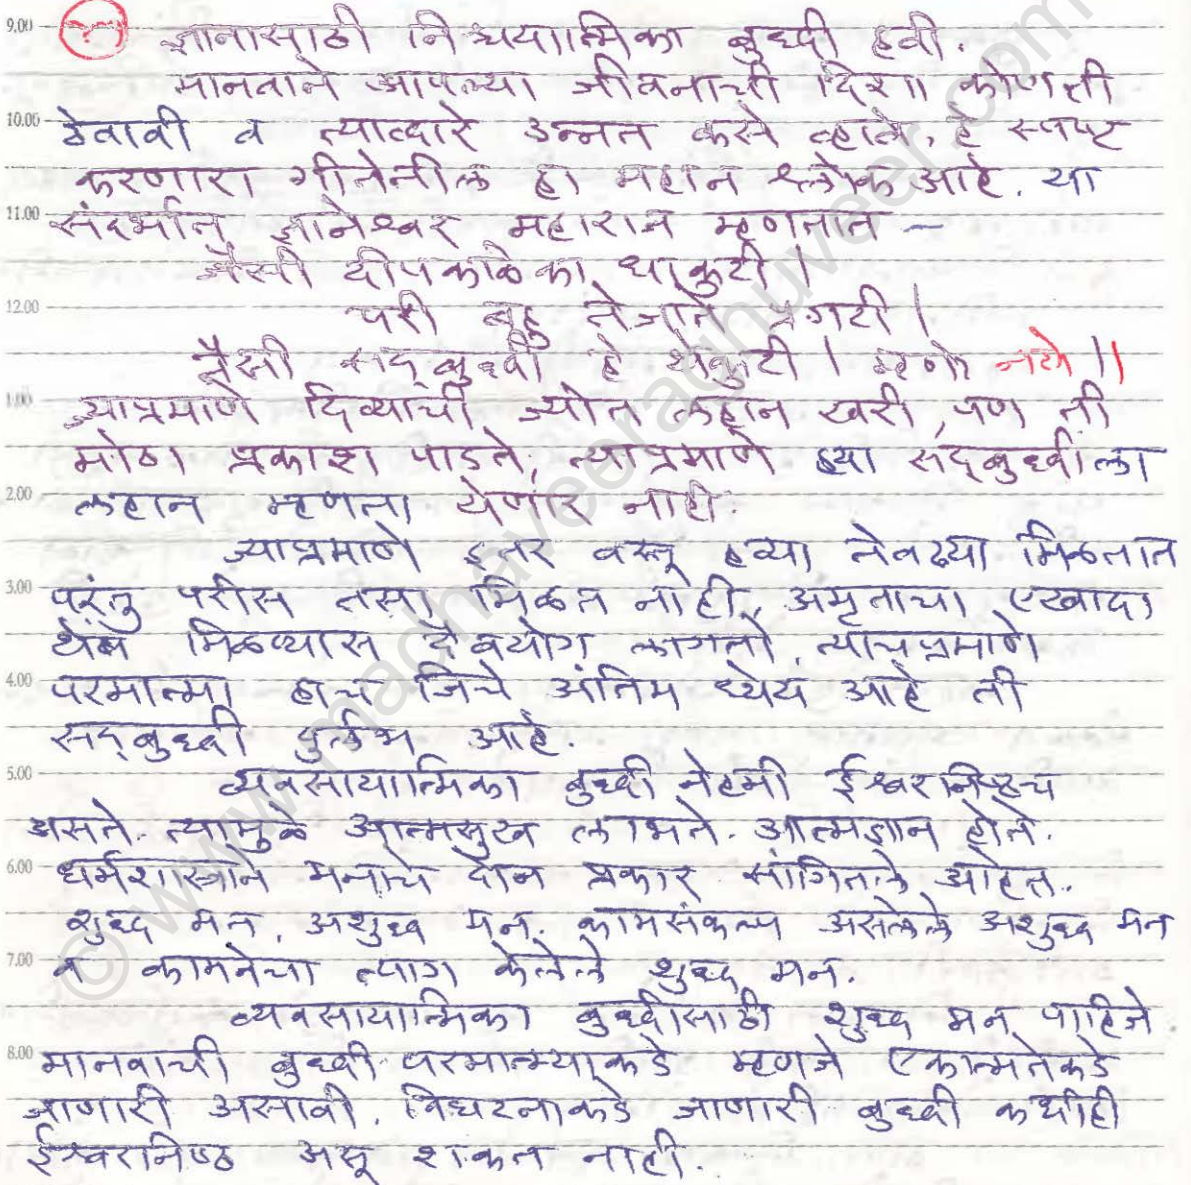 9.00 २ ज्ञानासाठी निश्चयात्मिका बुध्दी हवी.
मानवाने आपल्या जीवनाची दिशा कोणती
10.00 ठेवावी व त्याव्दारे उन्नत कसे व्हावे, हे स्पष्ट
करणारा गीतेतील हा महान श्लोक आहे. या
11.00 संदर्भात ज्ञानेश्वर महाराज म्हणतात –
जैसी दीपकळिका धाकुटी |
12.00 परी बहु तेजाते प्रगटी |
तैसी सद्बुध्दी हे थेकुटी | म्हणो नये ||
1.00 ज्याप्रमाणे दिव्याची ज्योत लहान खरी, पण ती
मोठा प्रकाश पाडते, त्याप्रमाणे ह्या सद्बुध्दीला
2.00 लहान म्हणता येणार नाही.
ज्याप्रमाणे इतर वस्तू हव्या तेवढ्या मिळतात
3.00 परंतु परीस तसा मिळत नाही, अमृताचा एखादा
थेंब मिळण्यास दैवयोग लागतो, त्याचप्रमाणे
4.00 परमात्मा हाच जिचे अंतिम ध्येय आहे ती
सद्बुध्दी दुर्लभ आहे.
5.00 व्यवसायात्मिका बुध्दी नेहमी ईश्वरनिष्ठच
असते. त्यामुळे आत्मसुख लाभते. आत्मज्ञान होते.
6.00 धर्मशास्त्राने मनाचे दोन प्रकार सांगितले आहेत.
शुध्द मन, अशुध्द मन. कामसंकल्प असलेले अशुध्द मन
7.00 व कामनेचा त्याग केलेले शुध्द मन.
व्यवसायात्मिका बुध्दीसाठी शुध्द मन पाहिजे
8.00 मानवाची बुध्दी परमात्म्याकडे म्हणजे एकात्मतेकडे
जाणारी असावी. विघटनाकडे जाणारी बुध्दी कधीही
ईश्वरनिष्ठ असू शकत नाही.
© www.madhavveeraghuveer.com